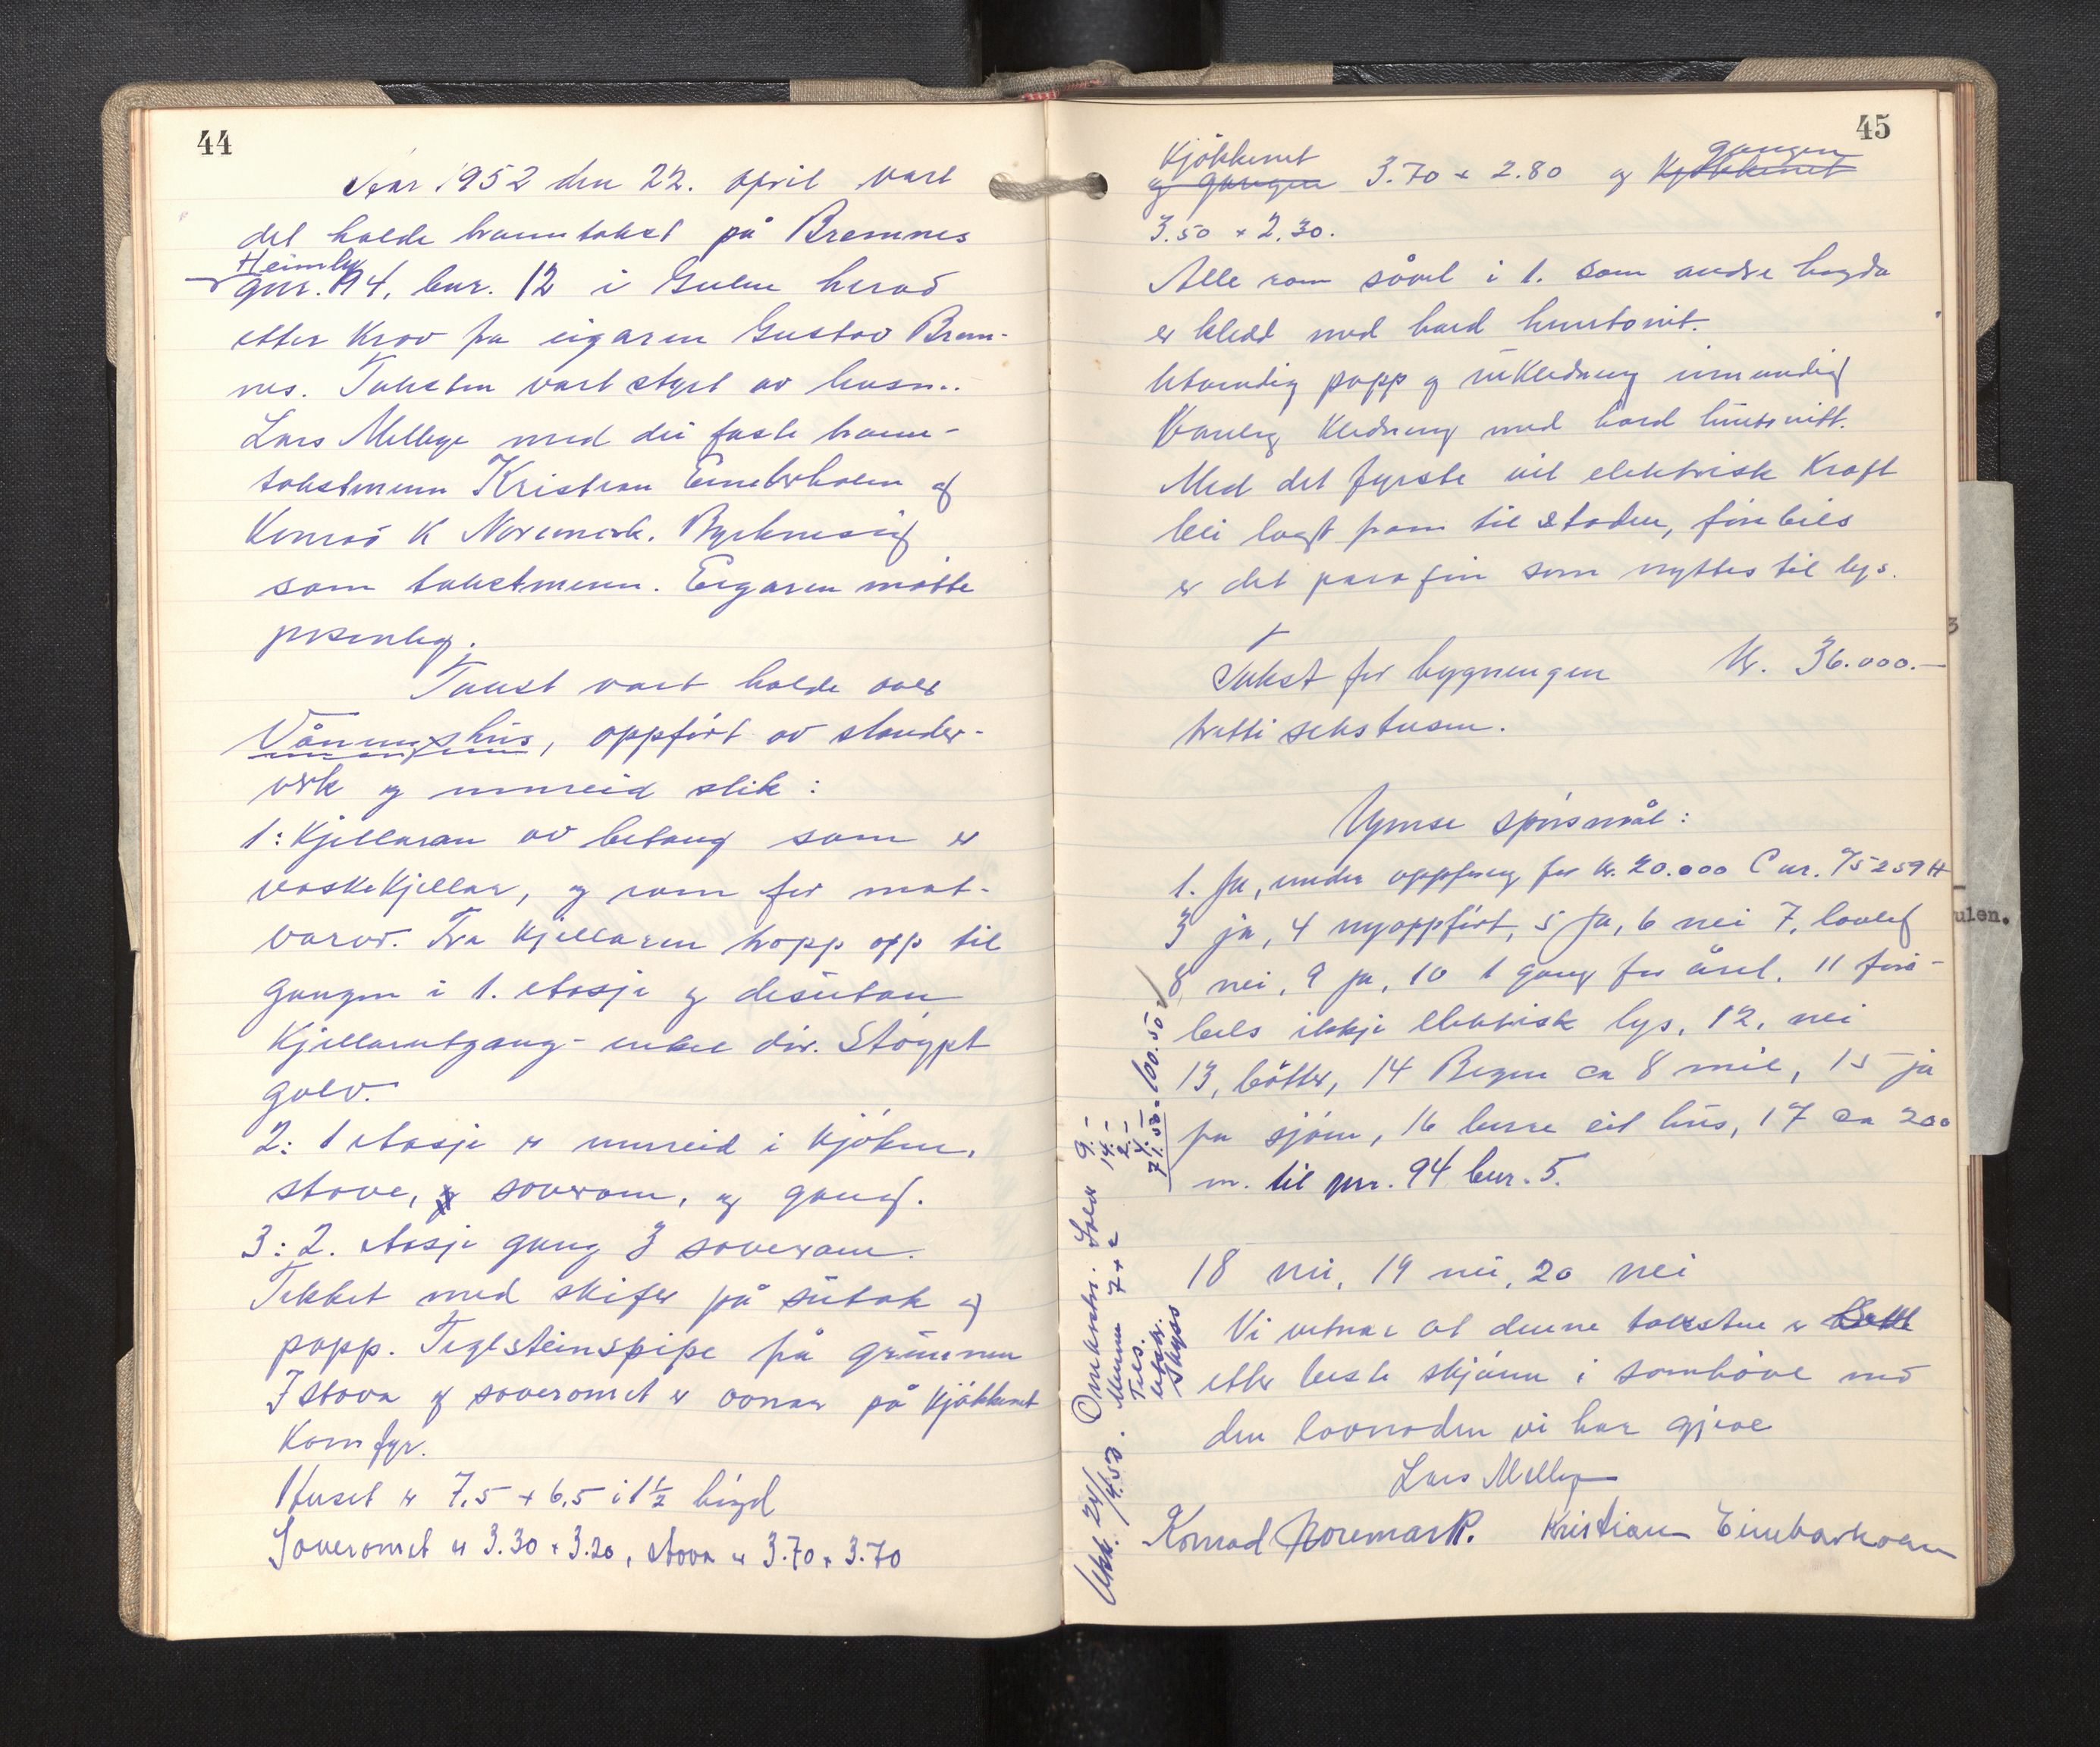 44
Aar 1952 den 22. april vart
det halde branntakst på Bremnes
Heimly
gnr. 94, bnr. 12 i Gulen herad
etter krav fra eigaren Gustav Brem-
nes. Taksten vart styrt av lensm.
Lars Mellbye med dei faste brann-
takstmenn Kristian Einebærholm og
Konrad K Noremark. Byrknesøy
som takstmenn. Eigaren møtte
personleg.
Takst vart halde over
Våningshus, oppført av stender-
verk og innreid slik:
1: Kjellaran av betong som er
vaskekjellar, og rom for mat-
varer. Fra kjellaren trapp opp til
gangen i 1. etasje og desutan
kjellarutgang - enkel dør. Støypt
golv.
2: 1 etasje er innreid i kjøken,
stove, soverom, og gang.
3: 2. etasje gang 3 soverom.
Tekket med skifer på sutak og
papp. Teglsteinspipe frå grunnen
I stova og soveromet er ovnar på kjøkkenet
Komfyr.
Huset er 7.5 x 6.5 i 1 1/2 høgd
Soveromet er 3.30 x 3.20, stova er 3.70 x 3.70
45
Kjøkkenet gangen
og gangen 3.70 x 2.80 og Kjøkkenet
3.50 x 2.30.
Alle rom såvel i 1. som andre høgda
er kledd med hard huntonit.
Utvendig papp og utkledning innvendig
Vanleg kledning med hard huntonitt.
Med det fyrste vil elektrisk kraft
bli lagt fram til staden, førebels
er det parafin som nyttes til lys.
Takst for bygningen kr. 36.000.-
tretti sekstusen.
Ymse spørsmål:
1. Ja, under oppføring for kr. 20.000 C nr. 75259 H
3 ja, 4 nyoppført, 5 ja, 6 nei 7, lovleg
8 nei, 9 ja, 10 1 gong for året. 11 føre-
bels ikkje elektrisk lys, 12, nei
13, bøtter, 14 Bergen ca 8 mil, 15 ja
fra sjøen, 16 berre eit hus, 17 ca 200
m. til gnr. 94 bnr. 5.
18 nei, 19 nei, 20 nei
Vi vitnar at denne taksten er
etter beste skjønn i samhøve med
den lovnaden vi har gjeve
Lars Mellbye
Konrad Noremark. Kristian Einebærholm
Utskr. 24/4.52. Omkostn. Lensm 9.-
Menn 7 x 2 14.-
Tils. 2.-
Utskr. 4.-
Skyss 71.50 = 100.50
ulen.
3